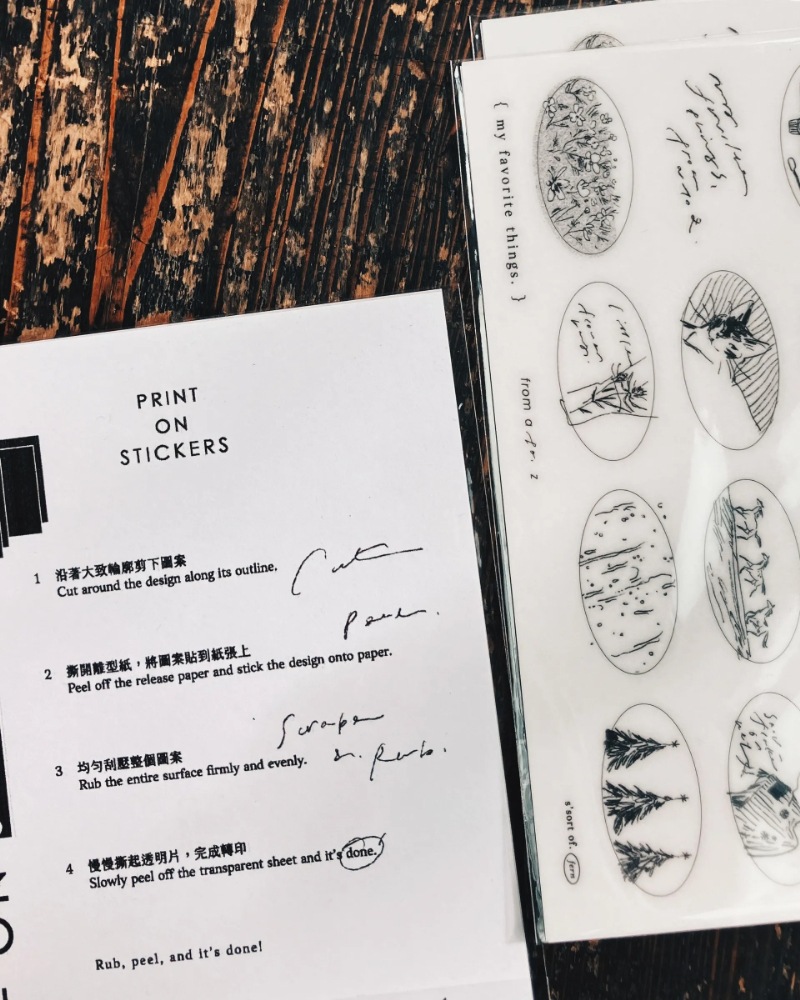 PRINT
ON
STICKERS
1 沿著大致輪廓剪下圖案
Cut around the design along its outline.
Cut
Peel.
2 撕開離型紙，將圖案貼到紙張上
Peel off the release paper and stick the design onto paper.
Scrape
Rub.
3 均勻刮壓整個圖案
Rub the entire surface firmly and evenly.
4 慢慢撕起透明片，完成轉印
Slowly peel off the transparent sheet and it's done.
Rub, peel, and it's done!
{ my favorite things. }
from a
s'sort of. fern